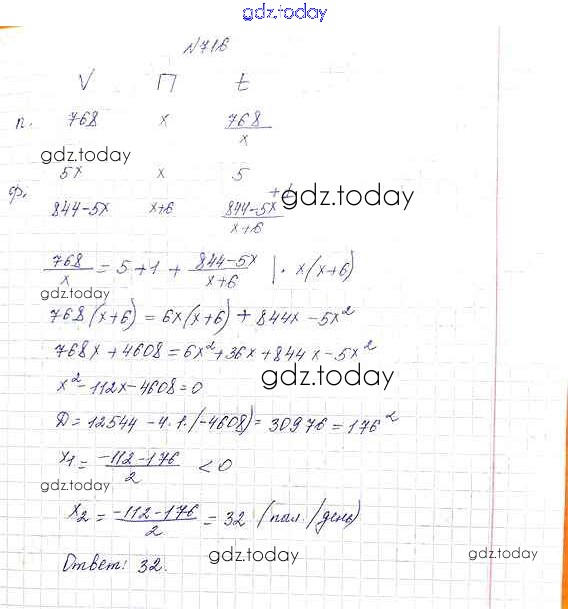 gdz.today
N716
V П t
п. 768 x 768/x
gdz.today
5x x 5
ф. +1
gdz.today
844-5x x+6 844-5x/x+6
768/x = 5+1 + 844-5x/x+6 | · x(x+6)
gdz.today
768(x+6) = 6x(x+6) + 844x - 5x²
768x + 4608 = 6x² + 36x + 844x - 5x²
x² - 112x - 4608 = 0
gdz.today
Д = 12544 - 4·1·(-4608) = 30976 = 176²
x₁ = -112-176/2 < 0
gdz.today
x₂ = -112-176/2 = 32 (пал./день)
Ответ: 32.
gdz.today
gdz.today